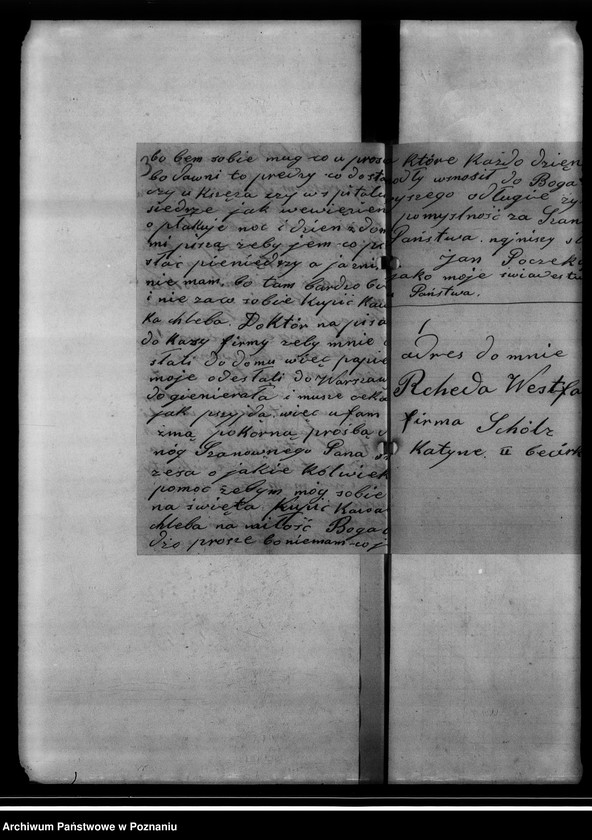 bo bem sobie mug co u prosi
bo dawni to prędzy co dosta
czy u księza czy w spitalu
siedzę jak wewięzien
o płakuje noc i dzien z dom
mi piszą zeby jem co po
słać pieniędzy a ja zni
nie mam, bo tam bardzo bi
i nie zaco sobie kupić kaw
ka chleba. Doktór na pisa
do kazy firmy zeby mnie o
słali do domu więc papie
moje odesłali do Warszaw
do gienierała i musze ceka
jak przyjda. więc ufam
zmą pokorną prośbą u
nóg Szanownego Pana
zesa o jakie kolwiek
pomoc zebym móg sobie
na święta kupić kawa
chleba na miłość Boga
dzo prosze bo niemam co j
które każdo dzięn
odły wznosił do Boga
yszego odługie zy
pomyslność za Szan
Państwa. najnisy sł
jan Poczeka
jako moje świadest
Państwa.
adres do mnie
Rcheda Westfa
firma Schölz
Katyne. II becirk
Archiwum Państwowe w Poznaniu